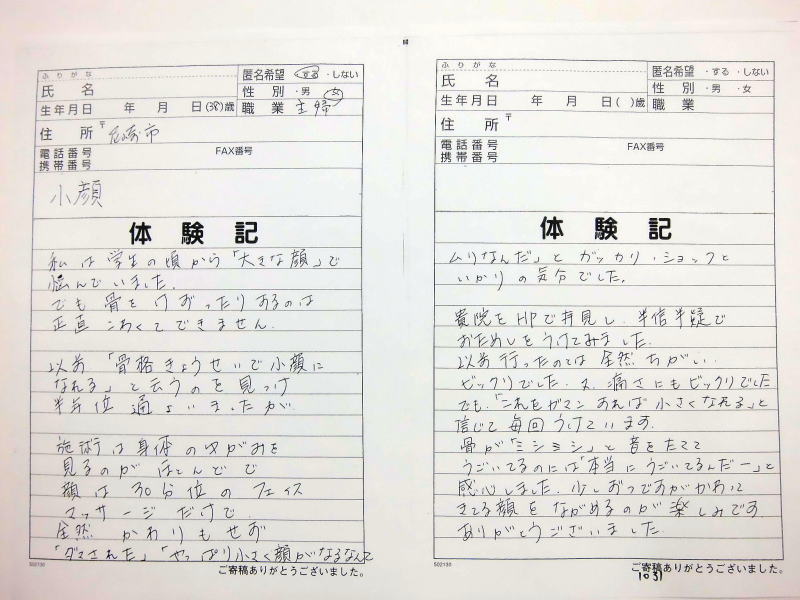 ふりがな
氏 名
匿名希望 ・する ・しない
性 別 ・男 ・女
生年月日 年 月 日(38)歳
職 業 主婦
住 所 〒 尼崎市
電話番号
携帯番号
FAX番号
小顔
体 験 記
私は学生の頃から「大きな顔」で
悩んでいました。
でも骨をけずったりするのは
正直こわくてできません。
以前「骨格きょうせいで小顔に
なれる」と云うのを見つけ
半年位通よいましたが
施術は身体のゆがみを
見るのがほとんどで
顔は30分位のフェイス
マッサージだけで
全然かわりもせず
「ダマされた」「やっぱり小さく顔がなるなんて
502130
ご寄稿ありがとうございました。
ふりがな
氏 名
匿名希望 ・する ・しない
性 別 ・男 ・女
生年月日 年 月 日( )歳
職 業
住 所 〒
電話番号
携帯番号
FAX番号
体 験 記
ムリなんだ」とガッカリ・ショックと
いかりの気分でした。
貴院をHPで拝見し、半信半疑で
おためしをうけてみました。
以前行ったのとは全然ちがい、
ビックリでした。又、痛さにもビックリでした
でも、「これをガマンすれば小さくなれる」と
信じて毎回うけています。
骨が「ミシミシ」と音をたてて
うごいてるのには「本当にうごいてるんだー」と
感心しました。少しずつですがかわって
きてる顔をながめるのが楽しみです
ありがとうございました。
502130
ご寄稿ありがとうございました。
1031